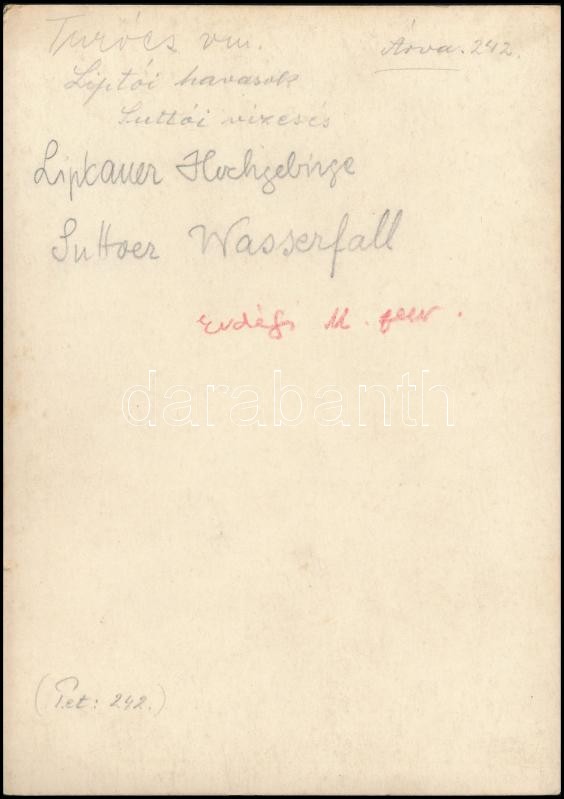 Turócz vm.
Árva. 242.
Liptói havasok
Suttói vizesés
Liptauer Hochgebirge
Suttoer Wasserfall
Erdélyi M. felv.
darabanth
(Pet: 242.)